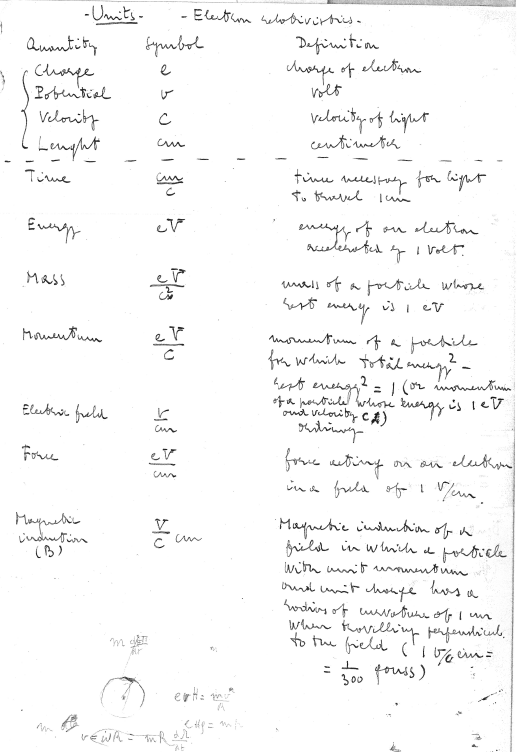 - Units - - Electron relativistics -
Quantity Symbol Definition
Charge e charge of electron
Potential v volt
Velocity C velocity of light
Lenght cm centimeter
Time cm/C time necessary for light
to travel 1 cm
Energy eV energy of an electron
accelerated by 1 Volt.
Mass eV/c² mass of a particle whose
rest energy is 1 eV
Momentum eV/C momentum of a particle
for which total energy² -
rest energy² = 1 (or momentum
of a particle whose energy is 1 eV
and velocity C)
Electric field V/cm
Force eV/cm force acting on an electron
in a field of 1 V/cm.
Magnetic induction (B) V/C cm Magnetic induction of a
field in which a particle
with unit momentum
and unit charge has a
radius of curvature of 1 cm
when travelling perpendicul.
to the field ( 1 V/c cm =
= 1/300 gauss)
m
evH = mv²/R
m
v = ωR = mR